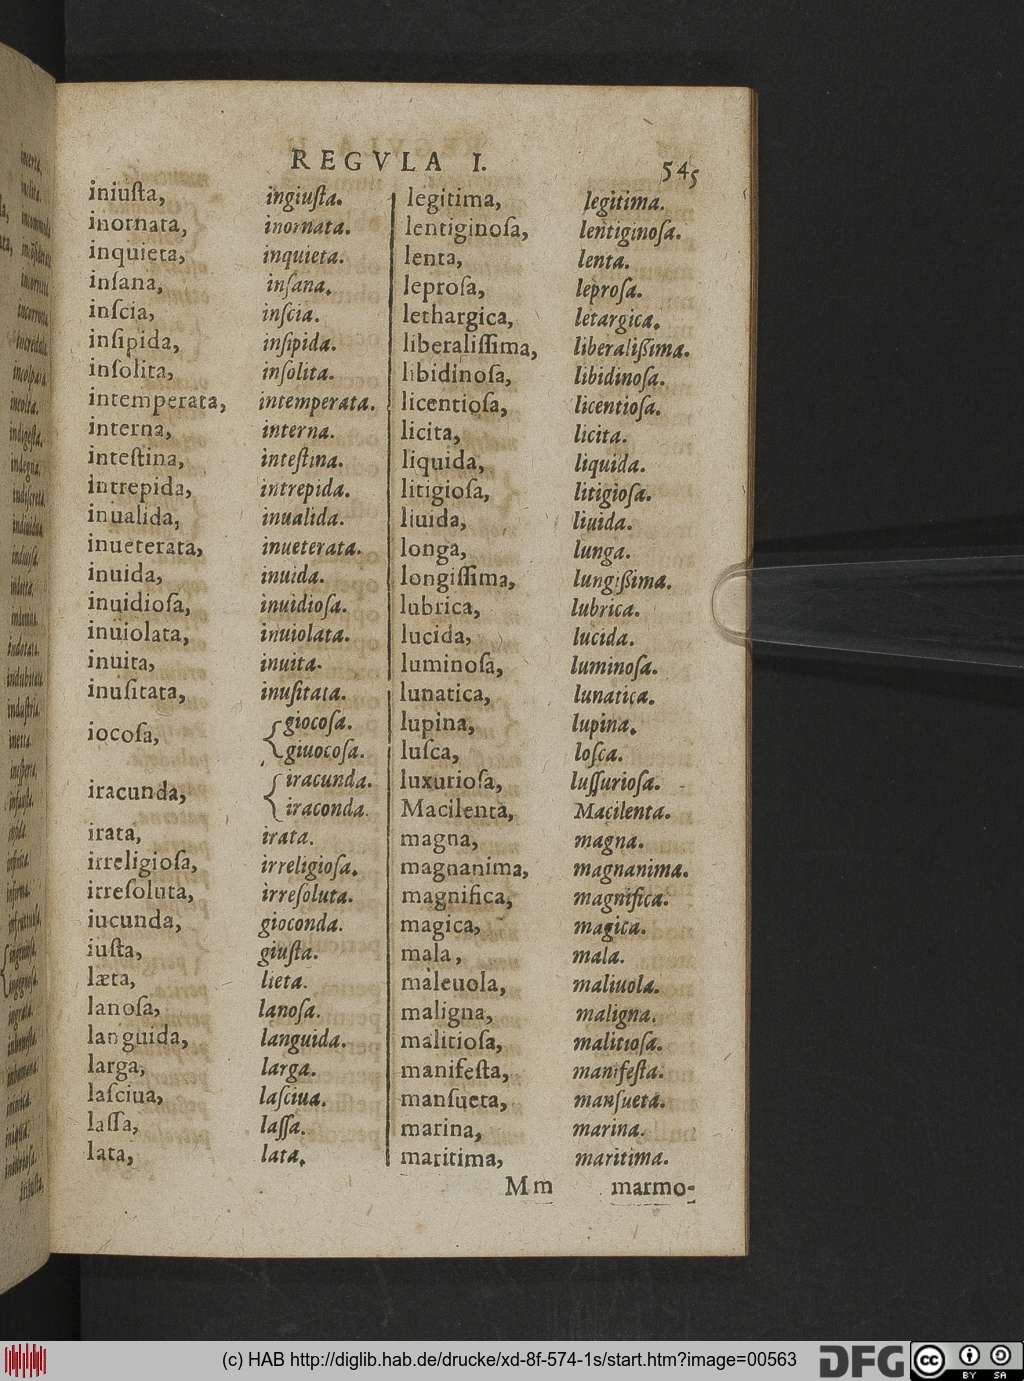 REGVLA I. 545
iniuſta, ingiuſta.
inornata, inornata.
inquieta, inquieta.
inſana, inſana.
inſcia, inſcia.
inſipida, inſipida.
inſolita, inſolita.
intemperata, intemperata.
interna, interna.
inteſtina, inteſtina.
intrepida, intrepida.
inualida, inualida.
inueterata, inueterata.
inuida, inuida.
inuidioſa, inuidioſa.
inuiolata, inuiolata.
inuita, inuita.
inuſitata, inuſitata.
iocoſa, giocoſa.
giuocoſa.
iracunda, iracunda.
iraconda.
irata, irata.
irreligioſa, irreligioſa.
irreſoluta, irreſoluta.
iucunda, gioconda.
iuſta, giuſta.
læta, lieta.
lanoſa, lanoſa.
languida, languida.
larga, larga.
laſciua, laſciua.
laſſa, laſſa.
lata, lata.
legitima, legitima.
lentiginoſa, lentiginoſa.
lenta, lenta.
leproſa, leproſa.
lethargica, letargica.
liberaliſſima, liberalißima.
libidinoſa, libidinoſa.
licentioſa, licentioſa.
licita, licita.
liquida, liquida.
litigioſa, litigioſa.
liuida, liuida.
longa, lunga.
longiſſima, lungißima.
lubrica, lubrica.
lucida, lucida.
luminoſa, luminoſa.
lunatica, lunatica.
lupina, lupina.
luſca, loſca.
luxurioſa, luſſurioſa.
Macilenta, Macilenta.
magna, magna.
magnanima, magnanima.
magnifica, magnifica.
magica, magica.
mala, mala.
maleuola, maliuola.
maligna, maligna.
malitioſa, malitioſa.
manifeſta, manifeſta.
manſueta, manſueta.
marina, marina.
maritima, maritima.
Mm marmo-
(c) HAB http://diglib.hab.de/drucke/xd-8f-574-1s/start.htm?image=00563
DFG
cc BY SA